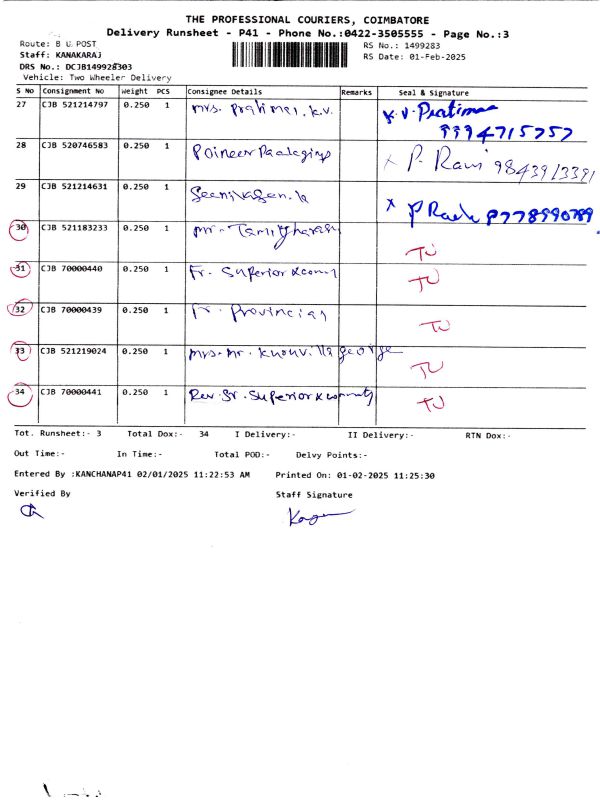 THE PROFESSIONAL COURIERS, COIMBATORE
Delivery Runsheet - P41 - Phone No.:0422-3505555 - Page No.:3
Route: B U POST
RS No.: 1499283
Staff: KANAKARAJ
RS Date: 01-Feb-2025
DRS No.: DCJB149928303
Vehicle: Two Wheeler Delivery
S No Consignment No Weight PCS Consignee Details Remarks Seal & Signature
27 CJB 521214797 0.250 1 Mrs. Prathima. K.V. K.V. Pratima
28 CJB 520746583 0.250 1 Poineer Packagings x P. Ravi 9843913391
29 CJB 521214631 0.250 1 Seenivasan. K x P 8778990789
30 CJB 521183233 0.250 1 Mr. TU
31 CJB 70000440 0.250 1 Fr. Superior & comm TU
32 CJB 70000439 0.250 1 Fr. Provincial TU
33 CJB 521219024 0.250 1 Mrs. Mr. george TU
34 CJB 70000441 0.250 1 Rev. Sr. Superior & community TU
Tot. Runsheet:- 3 Total Dox:- 34 I Delivery:- II Delivery:- RTN Dox:-
Out Time:- In Time:- Total POD:- Delvy Points:-
Entered By :KANCHANAP41 02/01/2025 11:22:53 AM Printed On: 01-02-2025 11:25:30
Verified By Staff Signature